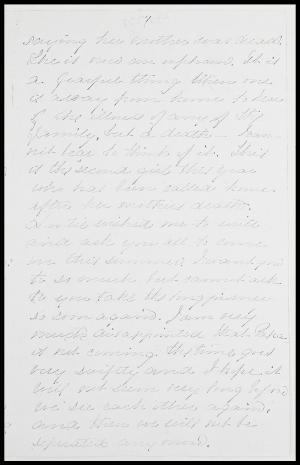 7
saying her mother was dead.
She is now an orphan. It is
a fearful thing when one
is away from home to hear
of the illness of any of the
family, but a death I can
not bear to think of it. This
is the second girl this year
who has been called home
after her mothers death.
wished me to write
and ask you all to come
on this summer. I want you
to so much but cannot ask
to you take the long journey
so soon again. I am very
much disappointed that Papa
is not coming. The time goes
very swiftly and I hope it
will not seem very long before
we see each other again,
and then we will not be
separated any more.